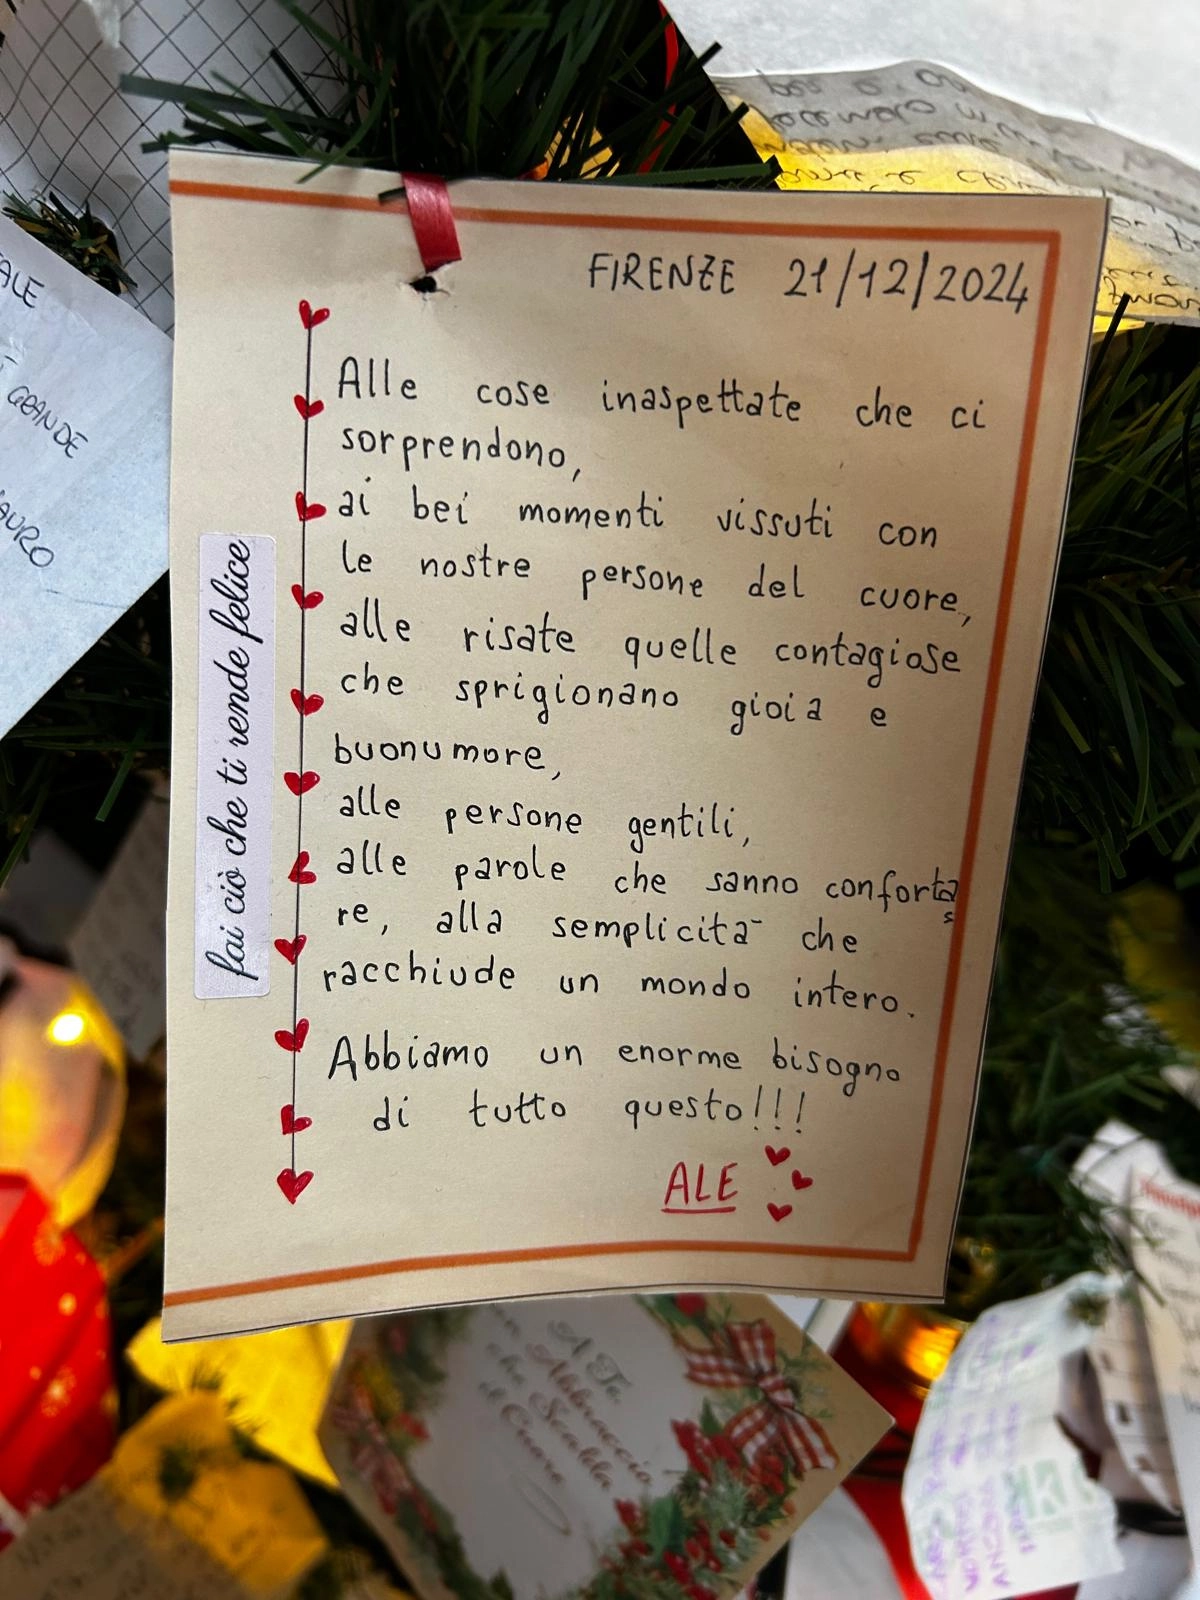 FIRENZE 21/12/2024
Alle cose inaspettate che ci
sorprendono,
ai bei momenti vissuti con
le nostre persone del cuore,
alle risate quelle contagiose
che sprigionano gioia e
buonumore,
alle persone gentili,
alle parole che sanno conforta
re, alla semplicità che
racchiude un mondo intero.
Abbiamo un enorme bisogno
di tutto questo!!!
ALE
fai ciò che ti rende felice
GRANDE
A Te,
Abbraccio
che Scalda
il Cuore